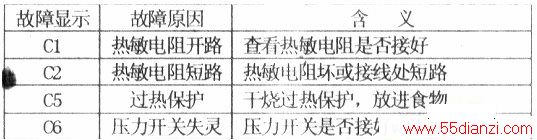 故障显示 故障原因 含 义
C1 热敏电阻开路 查看热敏电阻是否接好
C2 热敏电阻短路 热敏电阻坏或接线处短路
C5 过热保护 干烧过热保护，放进食物
C6 压力开关失灵 压力开关是否接好
www.55dianzi.com